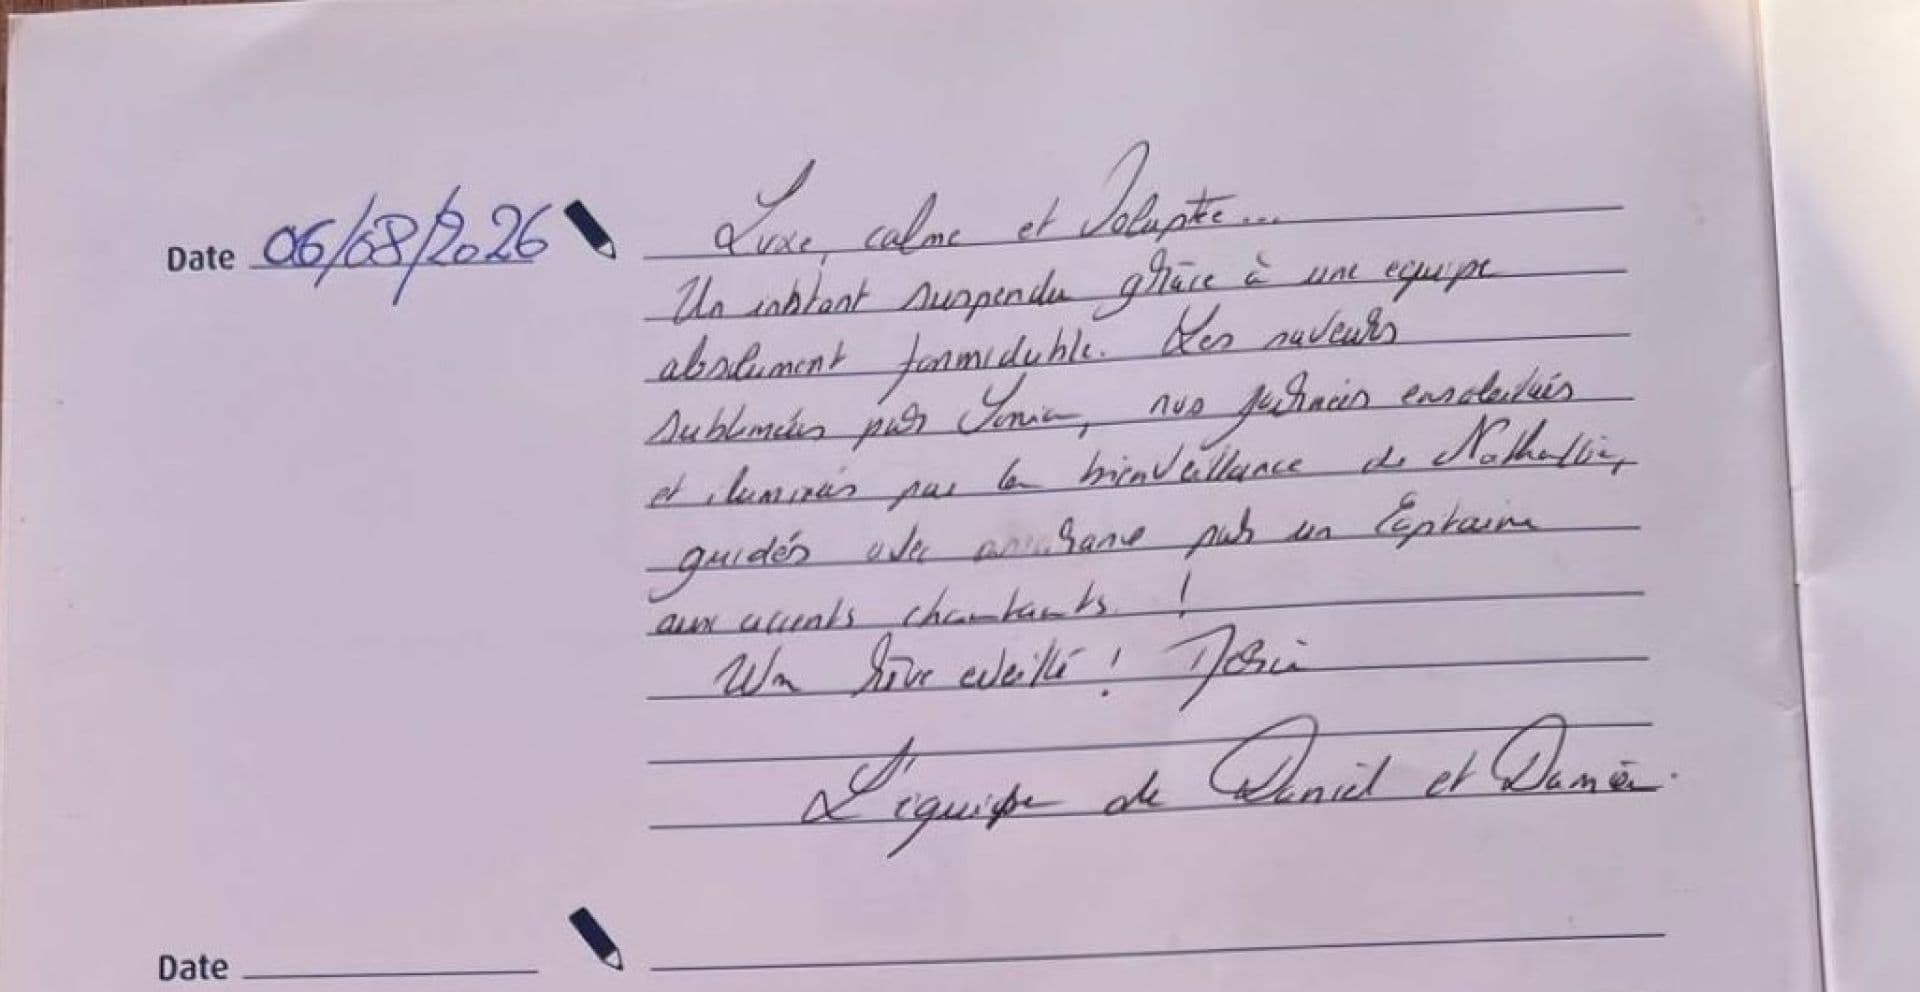 Date 06/08/2026
Luxe, calme et Volupte...
Un instant suspendu grâce à une equipe
absolument formidable. Les saveurs
sublimées par Sonia, nos journées ensoleillées
et iluminés par la bienveillance de Nathallie,
guidés avec par un Capitaine
aux accents chantants !
Un rêve eveillé !
L'équipe de Daniel et Damien.
Date